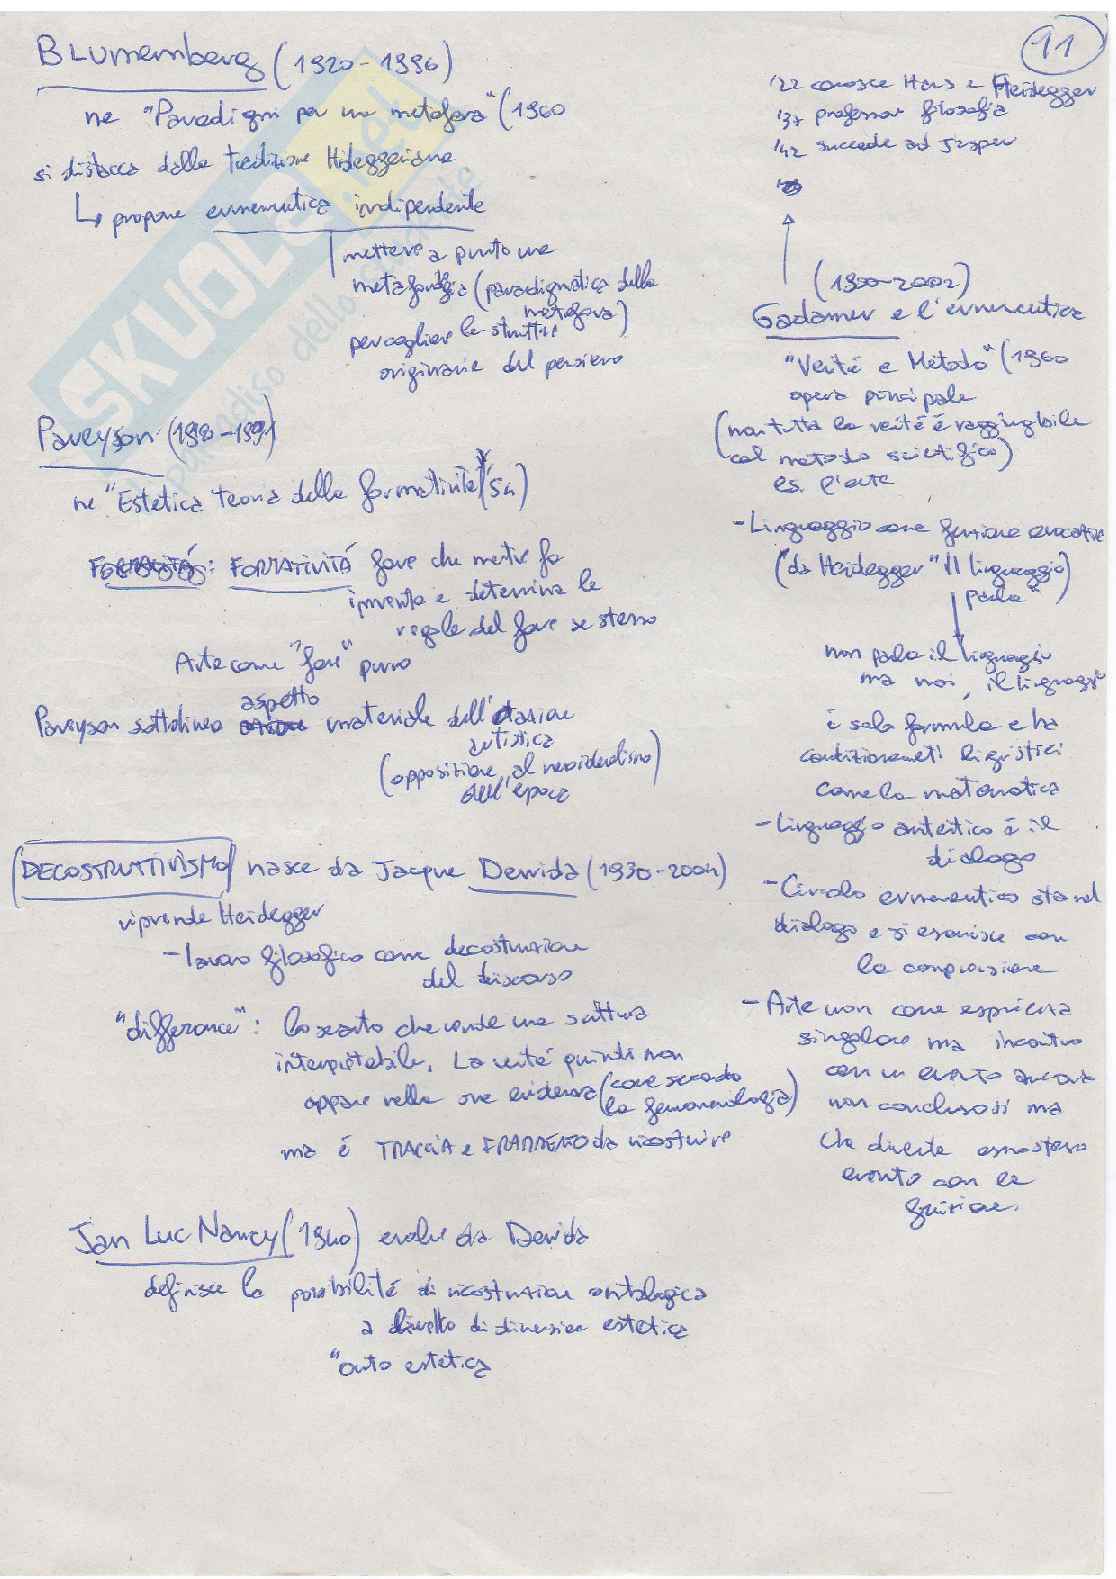 11
BLUMEMBERG (1920-1996)
ne "Paradigmi per una metafora" (1960
si distacca dalla tradizione Hideggeriana
↳ propone ermeneutica indipendente
mettere a punto una
(paradigmatica della
metafora)
per cogliere le strutture
originarie del pensiero
Pareyson
ne "Estetica teoria della formatività" ('54)
FORMATIVITÁ fare che mentre fa
inventa e determina le
regole del fare se stesso
Arte come "fare" puro
aspetto
Pareyson sottolinea materiale dell'
artistica
(opposizione al neoidealismo
dell'epoca)
DECOSTRUTTIVISMO nasce da Jacque Derrida (1930-2004)
riprende Heidegger
- lavoro filosofico come decostruzione
del discorso
"differance": lo scarto che rende una
interpretabile. La verité quindi non
appare nella sua evidenza (come secondo
la fenomenologia)
ma é TRACCIA e FRAMMENTO da ricostruire
Jan Luc Nancy (1940) evolve da Derida
definisce la possibilité di ricostruzione ontologica
a di dimensione estetica
"onto estetica
'22 conosce Heidegger
'37 professor filosofia
'42 succede ad
(1900-2002)
Gadamer e l'ermeneutica
"Verité e Metodo" (1960
opera principale
(non tutta la verité é raggiungibile
col metodo scientifico)
es. l'arte
- Linguaggio come funzione evocativa
(da Heidegger "Il linguaggio
parla")
non parla il linguaggio
ma noi, il linguaggio
é solo formula e ha
condizionamenti linguistici
come la matematica
- Linguaggio autentico é il
dialogo
- Circolo ermeneutico sta nel
dialogo e si esaurisce con
la comprensione
- Arte non come esperienza
singolare ma incontro
con un evento ancora
non conclusosi ma
che diventa esso stesso
evento con la
fruizione.
SKUOLA.net
paradiso dello studente